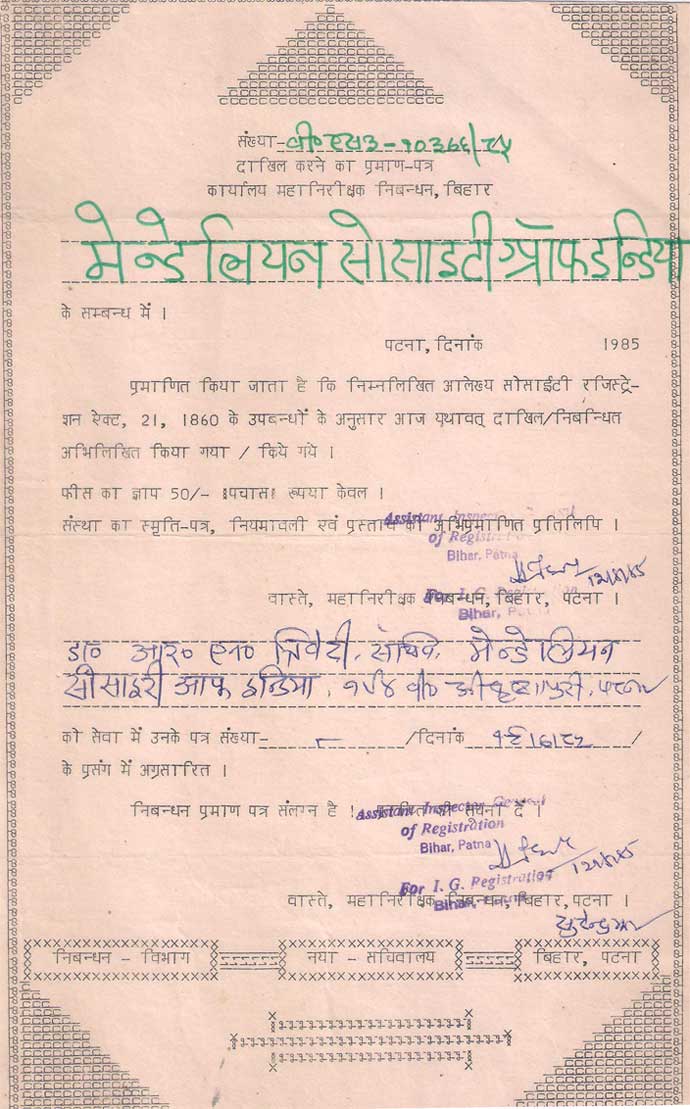 संख्या-वी० एस३-१०३६६/८५
दाखिल करने का प्रमाण-पत्र
कार्यालय महानिरीक्षक निबन्धन, बिहार
मेन्डेलियन सोसाइटी ऑफ इन्डिया
के सम्बन्ध में ।
पटना, दिनांक 1985
प्रमाणित किया जाता है कि निम्नलिखित आलेख्य सोसाईटी रजिस्ट्रे-
शन ऐक्ट, 21, 1860 के उपबन्धों के अनुसार आज यथावत् दाखिल/निबन्धित
अभिलिखित किया गया / किये गये ।
फीस का ज्ञाप 50/- ॥पचास॥ रूपया केवल ।
संस्था का स्मृति-पत्र, नियमावली एवं प्रस्ताव की अभिप्रमाणित प्रतिलिपि ।
Assistant Inspector General
of Registration
Bihar, Patna
12/8/85
For I. G. Registration
Bihar, Patna
वास्ते, महानिरीक्षक निबन्धन, बिहार, पटना ।
डा० आर० एन० त्रिवेदी, सचिव, मेन्डेलियन
सोसाइटी आफ इन्डिया, श्रीकृष्णापुरी, पटना
को सेवा में उनके पत्र संख्या- /दिनांक /
के प्रसंग में अग्रसारित ।
निबन्धन प्रमाण पत्र संलग्न है । की सूचना दें ।
Assistant Inspector General
of Registration
Bihar, Patna
12/8/85
For I. G. Registration
Bihar, Patna
वास्ते, महानिरीक्षक निबन्धन, बिहार, पटना ।
निबन्धन - विभाग नया - सचिवालय बिहार, पटना